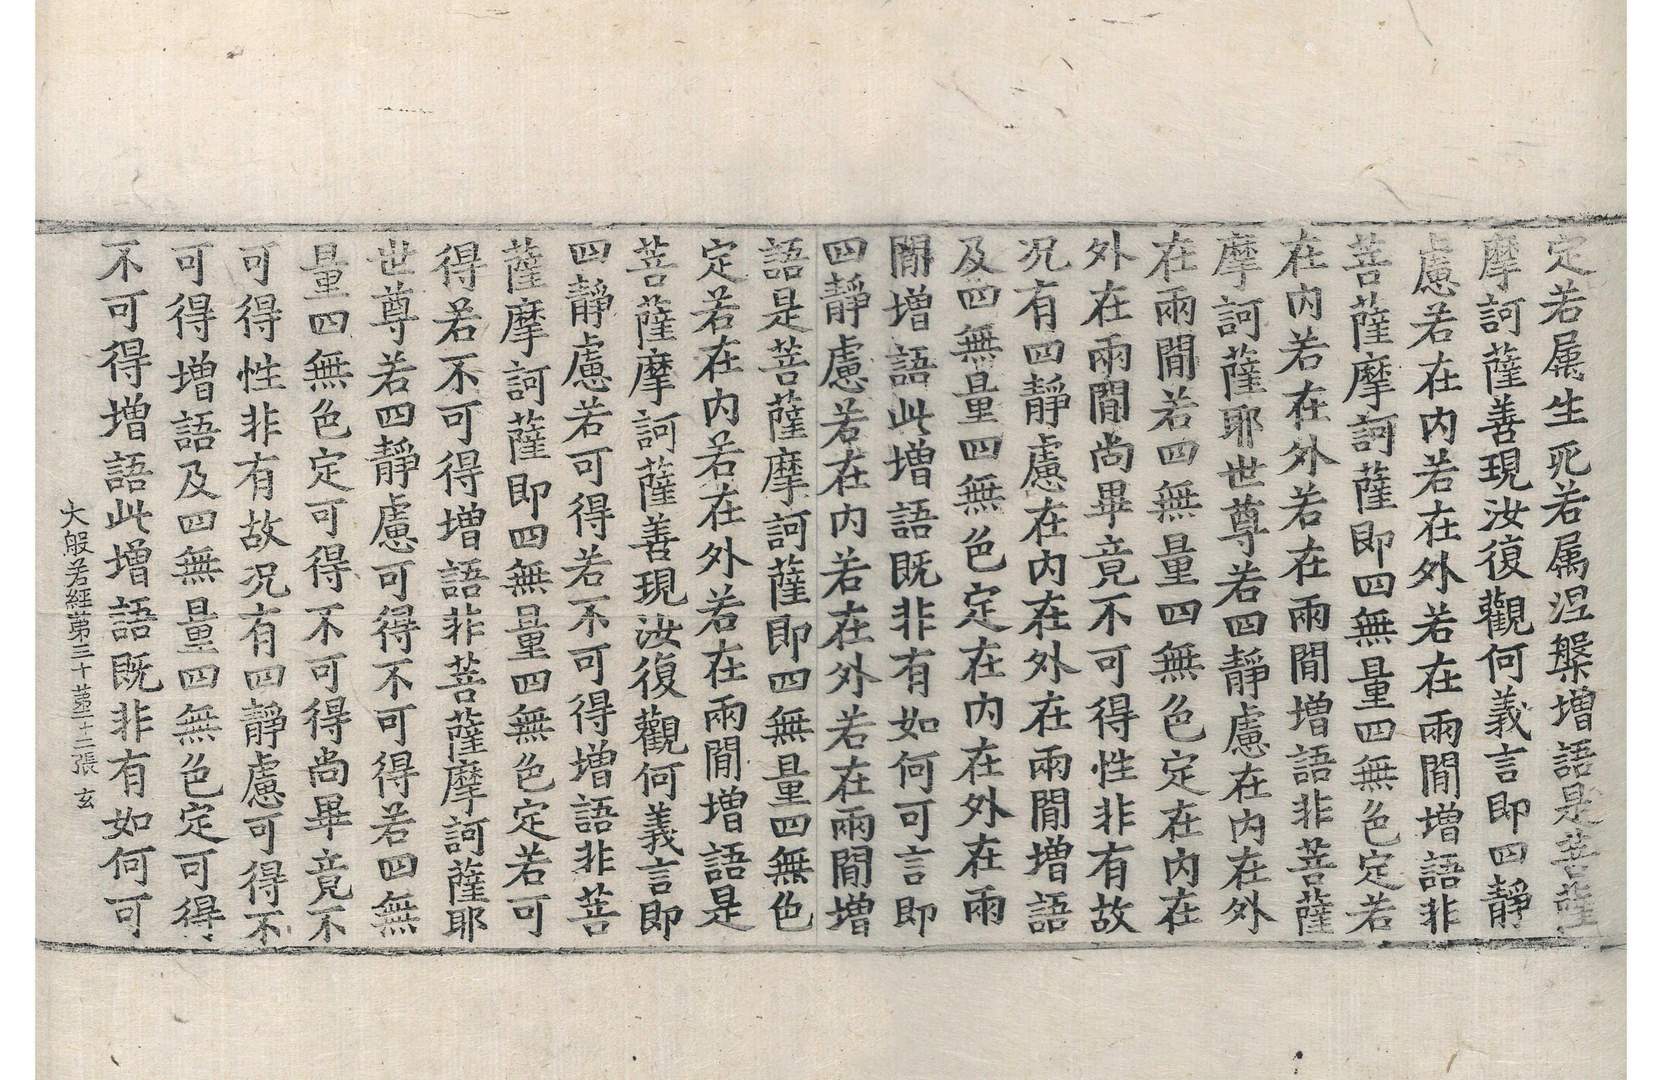 定若属生死若属涅槃增語是菩薩
摩訶薩善現汝復觀何義言即四靜
慮若在内若在外若在兩閒增語非
菩薩摩訶薩即四無量四無色定若
在内若在外若在兩閒增語非菩薩
摩訶薩耶世尊若四靜慮在内在外
在兩閒若四無量四無色定在内在
外在兩閒尚畢竟不可得性非有故
况有四靜慮在内在外在兩閒增語
及四無量四無色定在内在外在兩
閒增語此增語既非有如何可言即
四靜慮若在内若在外若在兩閒增
語是菩薩摩訶薩即四無量四無色
定若在内若在外若在兩閒增語是
菩薩摩訶薩善現汝復觀何義言即
四靜慮若可得若不可得增語非菩
薩摩訶薩即四無量四無色定若可
得若不可得增語非菩薩摩訶薩耶
世尊若四靜慮可得不可得若四無
量四無色定可得不可得尚畢竟不
可得性非有故况有四靜慮可得不
可得增語及四無量四無色定可得
不可得增語此增語既非有如何可
大般若經第三十 第十二張 玄